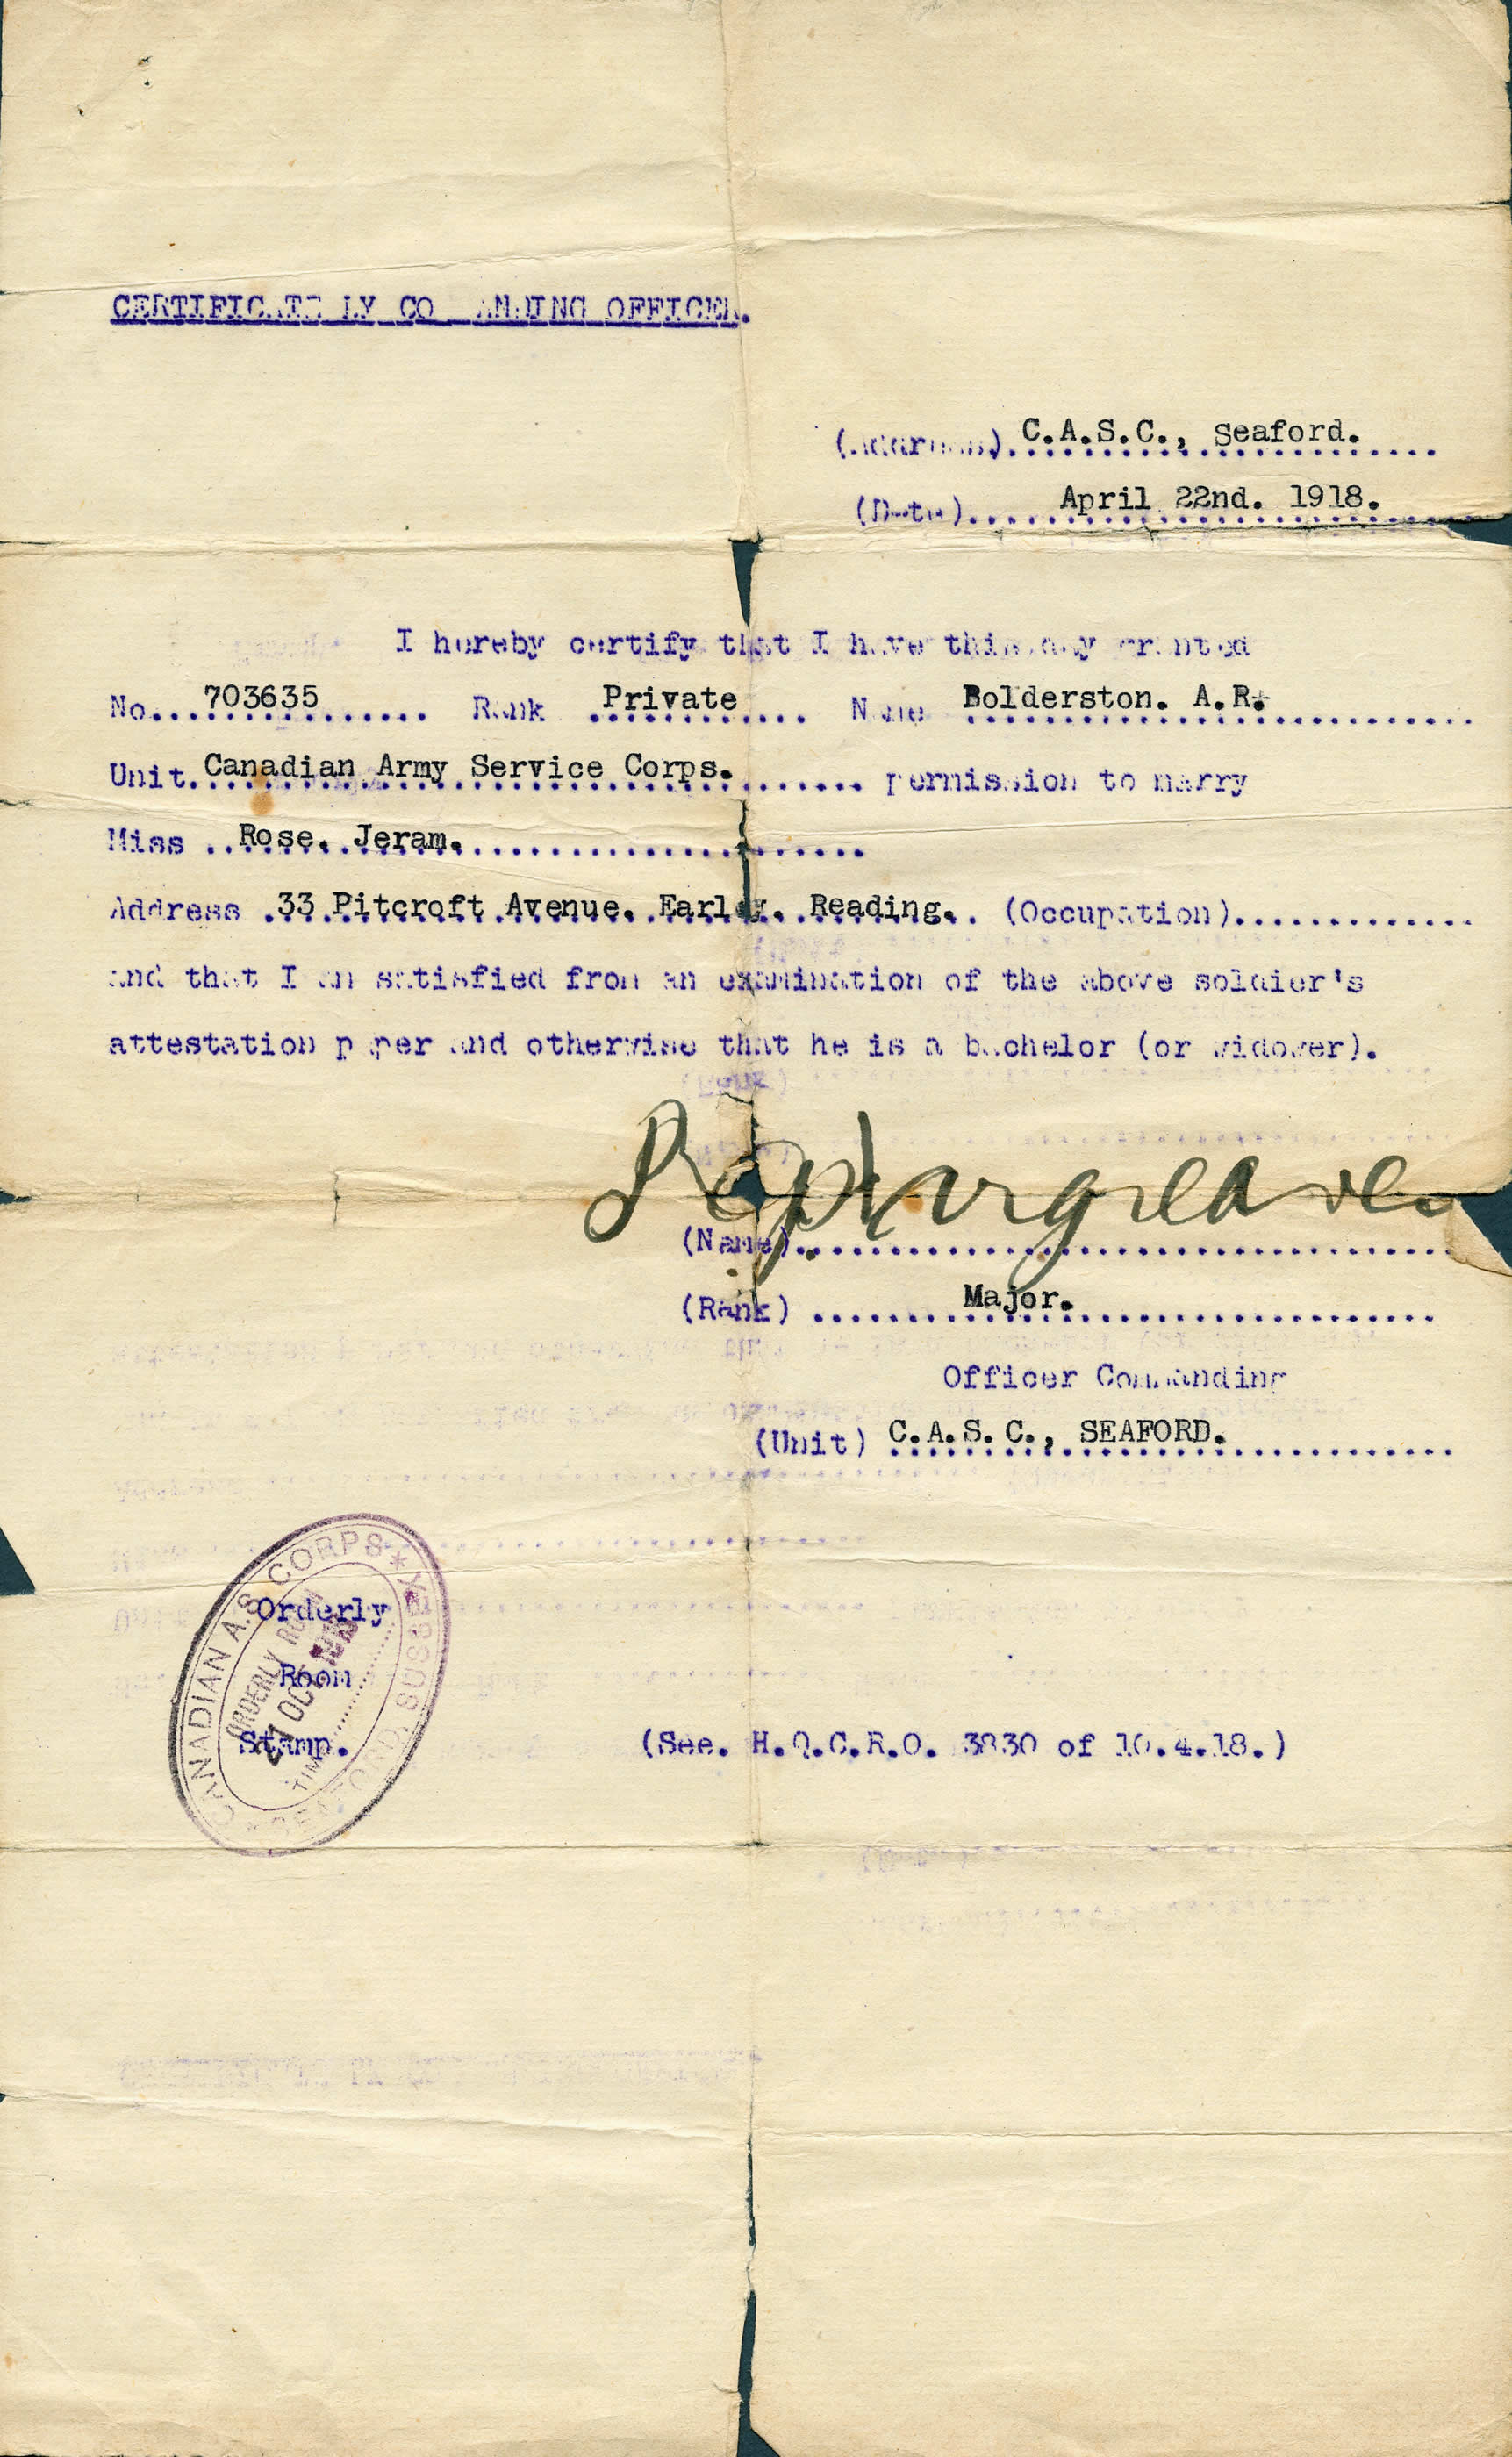 CERTIFICATE BY COMMANDING OFFICER.
(Address) C.A.S.C., Seaford.
(Date) April 22nd. 1918.
I hereby certify that I have this day granted
No. 703635 Rank Private Name Bolderston. A.R.
Unit. Canadian Army Service Corps. permission to marry
Miss Rose. Jeram.
Address 33 Pitcroft Avenue. Earley. Reading. (Occupation)
and that I am satisfied from an examination of the above soldier's
attestation paper and otherwise that he is a bachelor (or widower).
(Name)
(Rank) Major.
Officer Commanding
(Unit) C.A.S.C., SEAFORD.
CANADIAN A.S. CORPS * SEAFORD, SUSSEX
ORDERLY ROOM
TIME
Orderly
Room
Stamp.
(See. H.Q.C.R.O. 3830 of 10.4.18.)